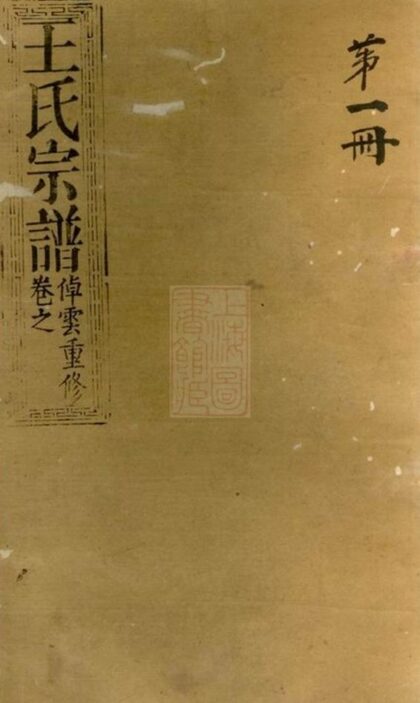 苐一冊
上海圖
書館藏
王氏宗譜
倬雲重修
卷之